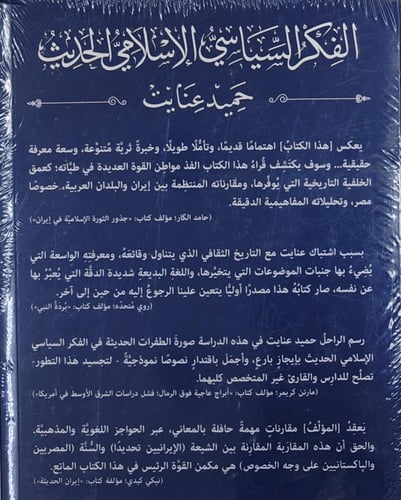 الفكر السياسي الإسلامي الحديث
حميد عنايت
يعكس [هذا الكتابُ] اهتمامًا قديمًا، وتأمُّلًا طويلًا، وخبرةً ثريَّة مُتنوِّعة، وسعة معرفة
حقيقية... وسوف يكتشِف قُراءُ هذا الكتاب الفذ مواطِن القوة العديدة في طيَّاته؛ كعمق
الخلفية التاريخية التي يُوفِّرها، ومقارناته المنتظِمة بين إيران والبلدان العربية، خصوصًا
مصر، وتحليلاته المفاهيمية الدقيقة.
(حامد الگار؛ مؤلف كتاب: «جذور الثورة الإسلاميَّة في إيران»)
بسبب اشتباك عنايت مع التاريخ الثقافي الذي يتناول وقائعَهُ، ومعرفتِهِ الواسعة التي
يُضِيءُ بها جنبات الموضوعات التي يتخيَّرها، واللغةِ البديعةِ شديدة الدقَّة التي يُعبِّرُ بها
عن نفسه، صار كتابُهُ هذا مصدرًا أوليًّا يتعين علينا الرجوعُ إليه من حين إلى آخر.
(روي متحده؛ مؤلف كتاب: «بُردَةُ النبي»)
رسم الراحلُ حميد عنايت في هذه الدراسة صورةَ الطفرات الحديثة في الفكر السياسي
الإسلامي الحديث بإيجازٍ بارع، وأجمَلَ باقتدارٍ نصوصًا نموذجيَّةً - لتجسيد هذا التطور-
تصلُح للدارسِ والقارئ غير المتخصص كليهما.
(مارتن كريمر؛ مؤلف كتاب: «أبراج عاجية فوق الرمال: فشل دراسات الشرق الأوسط في أمريكا»)
يَعقِدُ [المؤلِّفُ] مقارناتٍ مهمةً حافلة بالمعاني، عبر الحواجز اللغويَّة والمذهبيَّة.
والحق أن هذه المقارَبة المقارِنة بين الشيعة (الإيرانيين تحديدًا) والسُّنَّة (المصريين
والباكستانيين على وجه الخصوص) هي مكمن القوَّة الرئيس في هذا الكتاب الماتِع.
(نيكي كيدي؛ مؤلفة كتاب: «إيران الحديثة»)